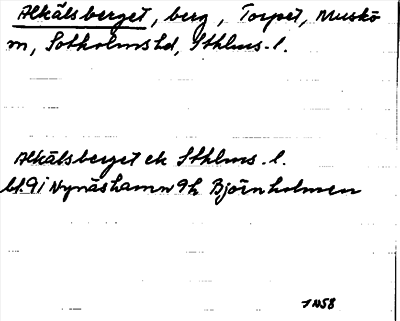 Alkälsberget, berg, Torpet, Muskö
m, Sotholms hd, Sthlms l.
Alkälsberget ek Sthlms l.
bl. 9i Nynäshamn 9h Björnholmen
1958